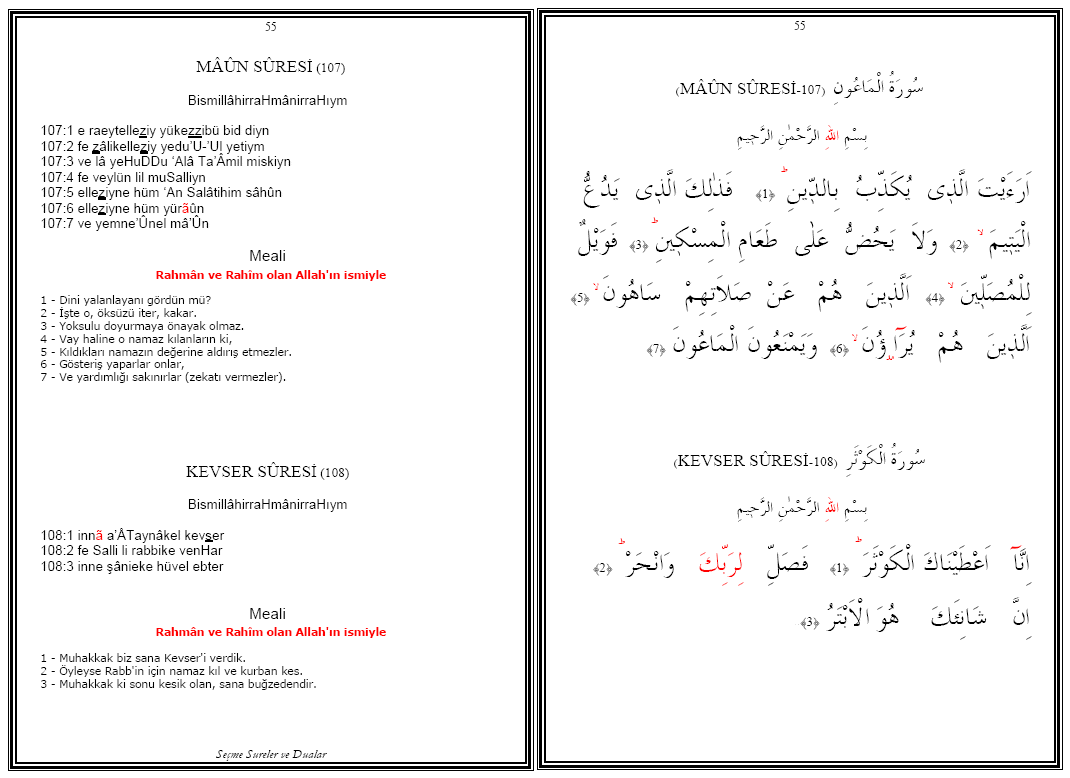 55
MÂÛN SÛRESİ (107)
BismillâhirraHmânirraHıym
107:1 e raeytelleziy yükezzibü bid diyn
107:2 fe zâlikelleziy yedu’U-’Ul yetiym
107:3 ve lâ yeHuDDu ‘Alâ Ta’Âmil miskiyn
107:4 fe veylün lil muSalliyn
107:5 elleziyne hüm ‘An Salâtihim sâhûn
107:6 elleziyne hüm yürãûn
107:7 ve yemne’Ûnel mâ’Ûn
Meali
Rahmân ve Rahîm olan Allah'ın ismiyle
1 - Dini yalanlayanı gördün mü?
2 - İşte o, öksüzü iter, kakar.
3 - Yoksulu doyurmaya önayak olmaz.
4 - Vay haline o namaz kılanların ki,
5 - Kıldıkları namazın değerine aldırış etmezler.
6 - Gösteriş yaparlar onlar,
7 - Ve yardımlığı sakınırlar (zekatı vermezler).
KEVSER SÛRESİ (108)
BismillâhirraHmânirraHıym
108:1 innã a’ÂTaynâkel kevser
108:2 fe Salli li rabbike venHar
108:3 inne şânieke hüvel ebter
Meali
Rahmân ve Rahîm olan Allah'ın ismiyle
1 - Muhakkak biz sana Kevser'i verdik.
2 - Öyleyse Rabb'in için namaz kıl ve kurban kes.
3 - Muhakkak ki sonu kesik olan, sana buğzedendir.
Seçme Sureler ve Dualar
55
سُورَةُ الْمَاعُونِ (MÂÛN SÛRESİ-107)
بِسْمِ اللهِ الرَّحْمٰنِ الرَّحٖيمِ
اَرَءَيْتَ الَّذٖى يُكَذِّبُ بِالدّٖينِ ؕ ﴿1﴾ فَذٰلِكَ الَّذٖى يَدُعُّ
الْيَتٖيمَ ۙ ﴿2﴾ وَلاَ يَحُضُّ عَلٰى طَعَامِ الْمِسْكٖينِ ؕ ﴿3﴾ فَوَيْلٌ
لِلْمُصَلّٖينَ ۙ ﴿4﴾ اَلَّذٖينَ هُمْ عَنْ صَلاَتِهِمْ سَاهُونَ ۙ ﴿5﴾
اَلَّذٖينَ هُمْ يُرَاۤؤُنَ ۙ ﴿6﴾ وَيَمْنَعُونَ الْمَاعُونَ ﴿7﴾
سُورَةُ الْكَوْثَرِ (KEVSER SÛRESİ-108)
بِسْمِ اللهِ الرَّحْمٰنِ الرَّحٖيمِ
اِنَّاۤ اَعْطَيْنَاكَ الْكَوْثَرَ ؕ ﴿1﴾ فَصَلِّ لِرَبِّكَ وَانْحَرْ ؕ ﴿2﴾
اِنَّ شَانِئَكَ هُوَ الْاَبْتَرُ ﴿3﴾